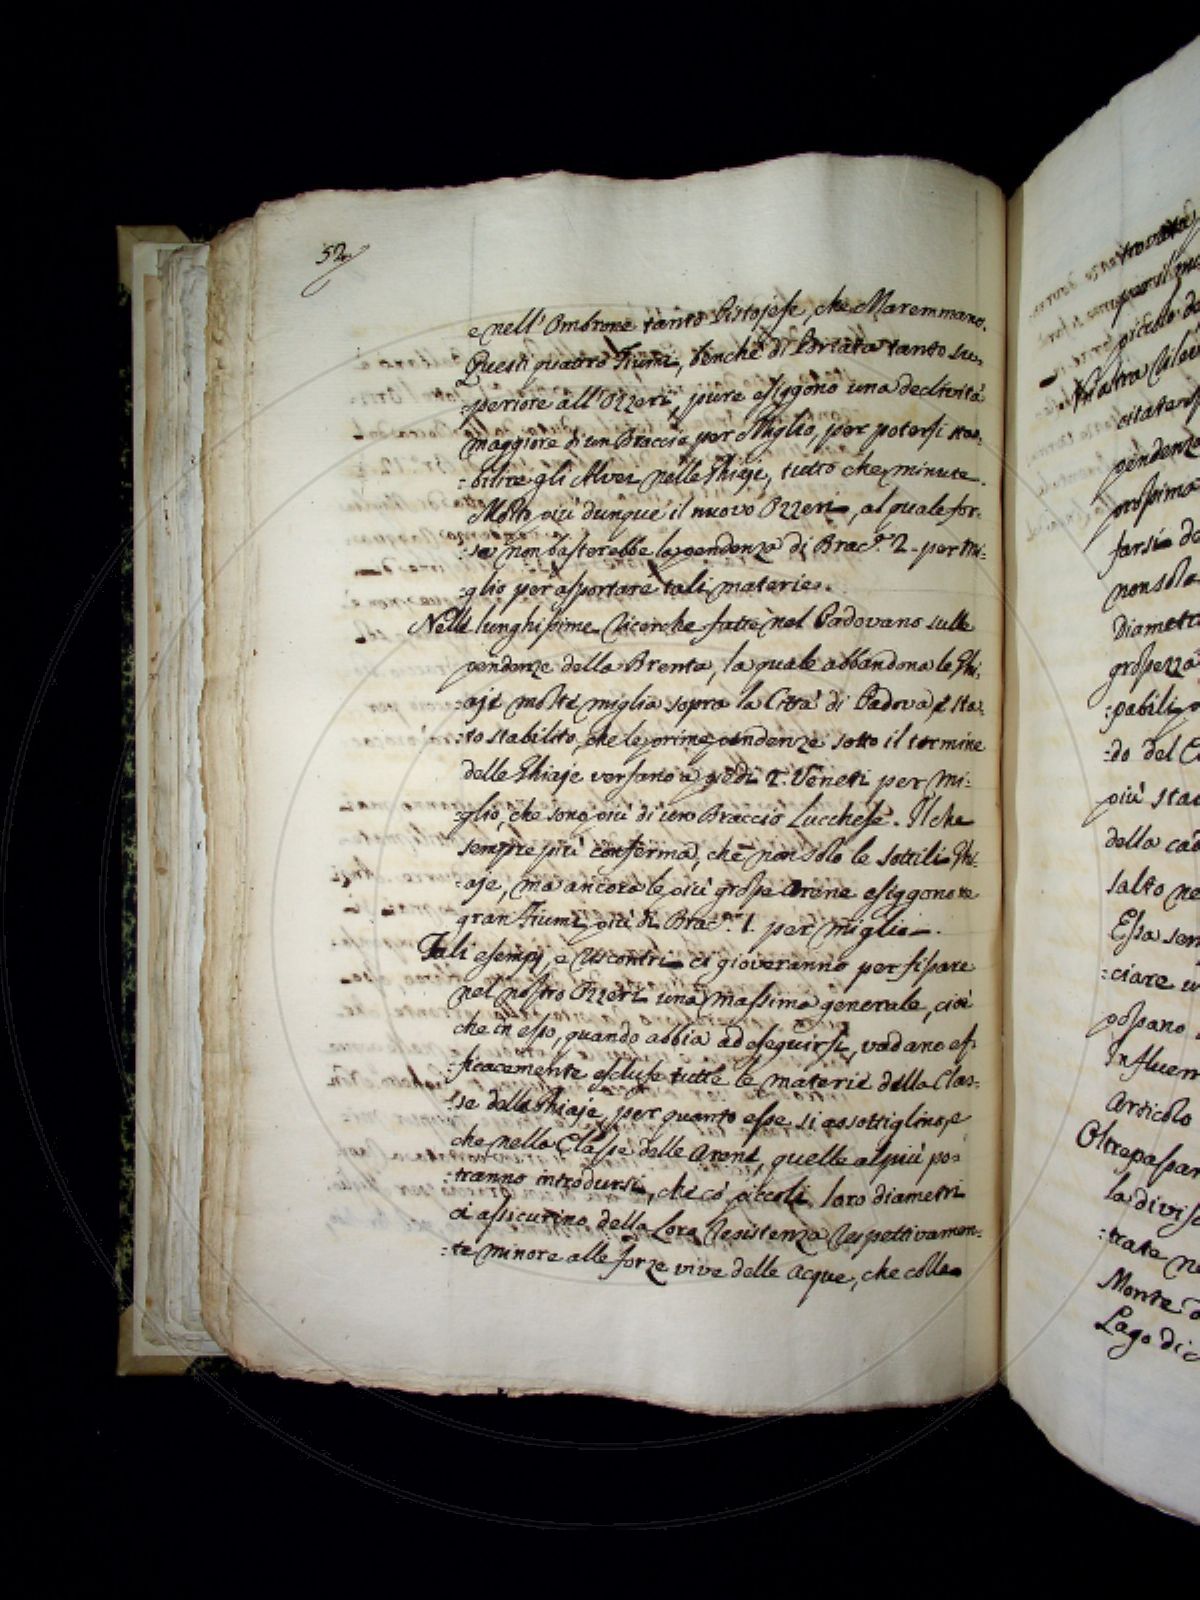 52
e nell' Ombrone tanto Pistojese, che Maremmano.
Questi quattro Fiumi, benchè di Portata tanto su-
:periore all' Ozzeri, pure esiggono una declività
maggiore di un Braccio per Miglio, per potersi sta-
:bilire gli Alvei nelle Ghiaje, tutto che minute.
Molto più dunque il nuovo Ozzeri, al quale for-
:se non basterebbe la pendenza di Brac.ª 2 - per Mi-
:glio per asportare tali materie.
Nelle lunghissime Ricerche fatte nel Padovano sulle
pendenze della Brenta, la quale abbandona le Ghi-
:aje molte miglia sopra la Città di Padova, è sta-
:to stabilito, che le prime pendenze sotto il termine
delle Ghiaje versano a piedi 2. Veneti per Mi-
:glio, che sono più di un Braccio Lucchese. Il che
sempre più conferma, che non solo le sottili Ghi-
:aje, ma ancora le più grosse Arene esiggono ne
gran Fiumi più di Brac.º 1. per miglio.
Tali esempj, e Riscontri ci gioveranno per fissare
nel nostro Ozzeri una massima generale, cioè
che in esso, quando abbia ad eseguirsi, vadano ef-
:ficacemente escluse tutte le materie della Clas-
:se delle Ghiaje, per quanto esse si assottiglino, e
che nella Classe delle Arene, quelle al più po-
:tranno introdursi, che co' piccoli loro diametri
ci assicurino della Loro Resistenza Respettivamen-
:te minore alle forze vive delle Acque, che colle
trovata
per il
piccole
Nostra
citate
pendenze
prossima
farsi
non solo
Diametri
grossezza
:pabili
:do del
più
della
salto ne
Essa
:ciare
possano
Influen
Articolo
Oltrepassan
la divis
:trate ne
Monte
Lago di